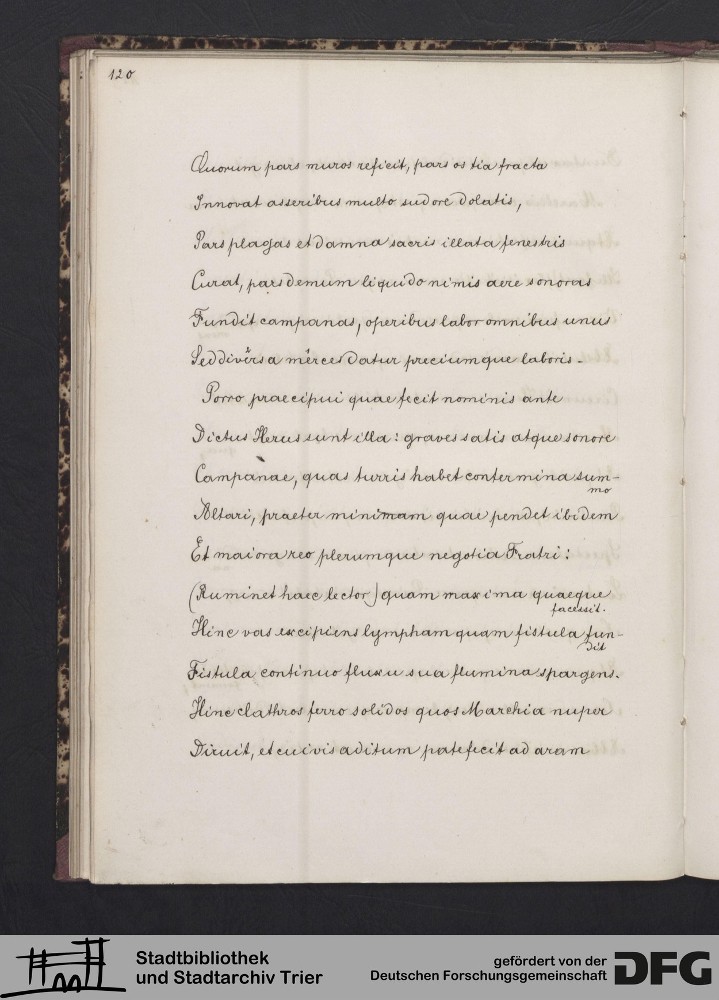 120
Quorum pars muros reficit, pars ostia fracta
Innovat asseribus multo sudore dolatis,
Pars plagas et damna sacris illata fenestris
Curat, pars demum liquido nimis aere sonoras
Fundit campanas, operibus labor omnibus unus
Sed diversa merces datur preciumque laboris.
Porro praecipui quae fecit nominis ante
Dictus Herus sunt illa: graves satis atque sonore
Campanae, quas turris habet contermina sum-
mo
Altari, praeter minimam quae pendet ibidem
Et maiora reo plerumque negotia Fratri:
(Ruminet haec lector) quam maxima quaeque
facessit.
Hinc vas excipiens lympham quam fistula fun-
dit
Fistula continuo fluxu sua flumina spargens.
Hinc clathros ferro solidos quos Marchia nuper
Diruit, et cuivis aditum patefecit ad aram
Stadtbibliothek
und Stadtarchiv Trier
gefördert von der
Deutschen Forschungsgemeinschaft
DFG